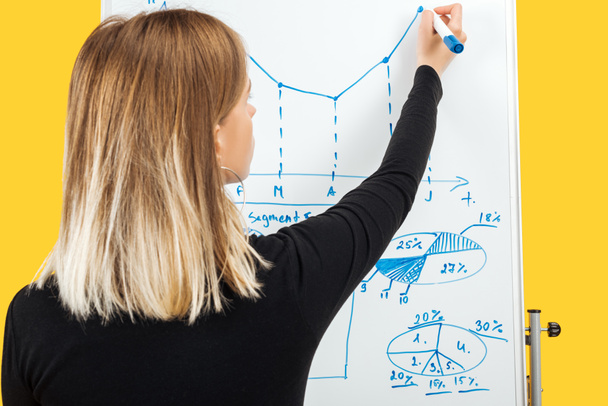 F M A J t.
Segment
18%
25%
27%
9 11 10
20% 30%
1. 4.
2. 3. 5.
20% 15% 15%